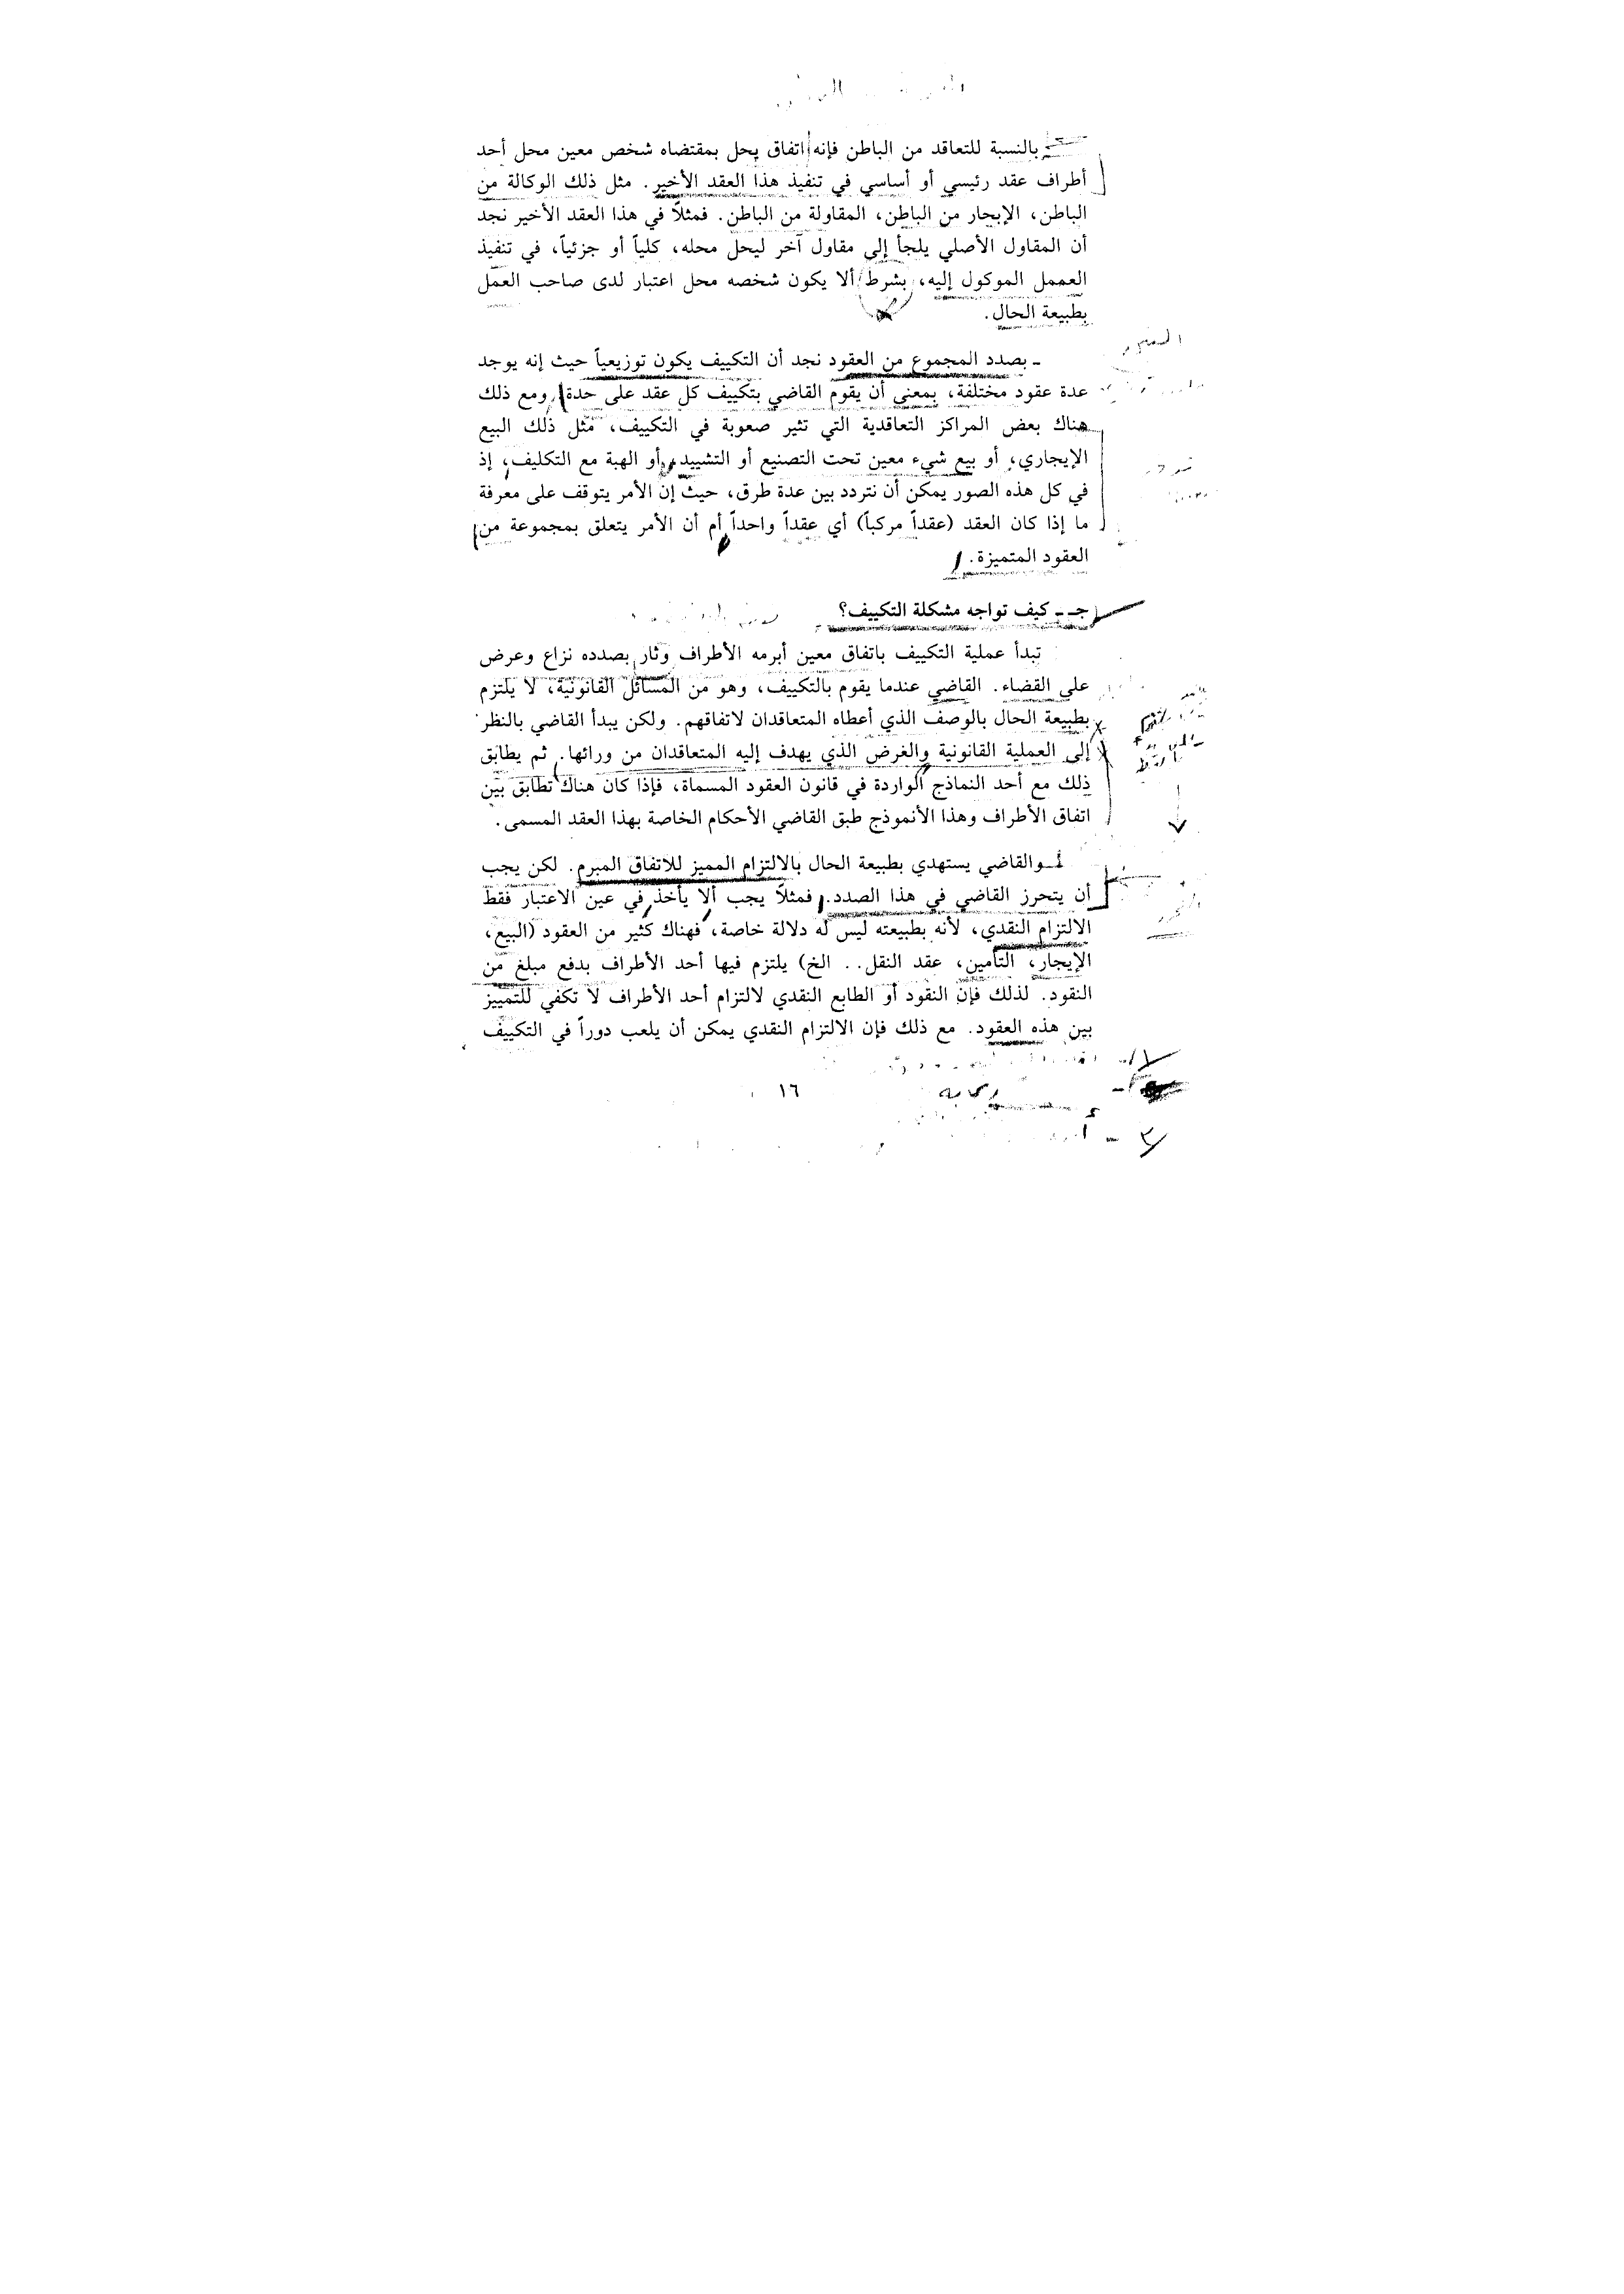 بالنسبة للتعاقد من الباطن فإنه اتفاق يحل بمقتضاه شخص معين محل أحد
أطراف عقد رئيسي أو أساسي في تنفيذ هذا العقد الأخير. مثل ذلك الوكالة من
الباطن، الإيجار من الباطن، المقاولة من الباطن. فمثلاً في هذا العقد الأخير نجد
أن المقاول الأصلي يلجأ إلى مقاول آخر ليحل محله، كلياً أو جزئياً، في تنفيذ
العممل الموكول إليه، بشرط ألا يكون شخصه محل اعتبار لدى صاحب العمل
بطبيعة الحال.
ـ بصدد المجموع من العقود نجد أن التكييف يكون توزيعياً حيث إنه يوجد
عدة عقود مختلفة، بمعنى أن يقوم القاضي بتكييف كل عقد على حدة، ومع ذلك
هناك بعض المراكز التعاقدية التي تثير صعوبة في التكييف، مثل ذلك البيع
الإيجاري، أو بيع شيء معين تحت التصنيع أو التشييد، أو الهبة مع التكليف، إذ
في كل هذه الصور يمكن أن نتردد بين عدة طرق، حيث إن الأمر يتوقف على معرفة
ما إذا كان العقد (عقداً مركباً) أي عقداً واحداً أم أن الأمر يتعلق بمجموعة من
العقود المتميزة.
جـ ـ كيف تواجه مشكلة التكييف؟
تبدأ عملية التكييف باتفاق معين أبرمه الأطراف وثار بصدده نزاع وعرض
على القضاء. القاضي عندما يقوم بالتكييف، وهو من المسائل القانونية، لا يلتزم
بطبيعة الحال بالوصف الذي أعطاه المتعاقدان لاتفاقهم. ولكن يبدأ القاضي بالنظر
إلى العملية القانونية والغرض الذي يهدف إليه المتعاقدان من ورائها. ثم يطابق
ذلك مع أحد النماذج الواردة في قانون العقود المسماة، فإذا كان هناك تطابق بين
اتفاق الأطراف وهذا الأنموذج طبق القاضي الأحكام الخاصة بهذا العقد المسمى.
والقاضي يستهدي بطبيعة الحال بالالتزام المميز للاتفاق المبرم. لكن يجب
أن يتحرز القاضي في هذا الصدد. فمثلاً يجب ألا يأخذ في عين الاعتبار فقط
الالتزام النقدي، لأنه بطبيعته ليس له دلالة خاصة، فهناك كثير من العقود (البيع،
الإيجار، التأمين، عقد النقل.. الخ) يلتزم فيها أحد الأطراف بدفع مبلغ من
النقود. لذلك فإن النقود أو الطابع النقدي لالتزام أحد الأطراف لا تكفي للتمييز
بين هذه العقود. مع ذلك فإن الالتزام النقدي يمكن أن يلعب دوراً في التكييف
١٦